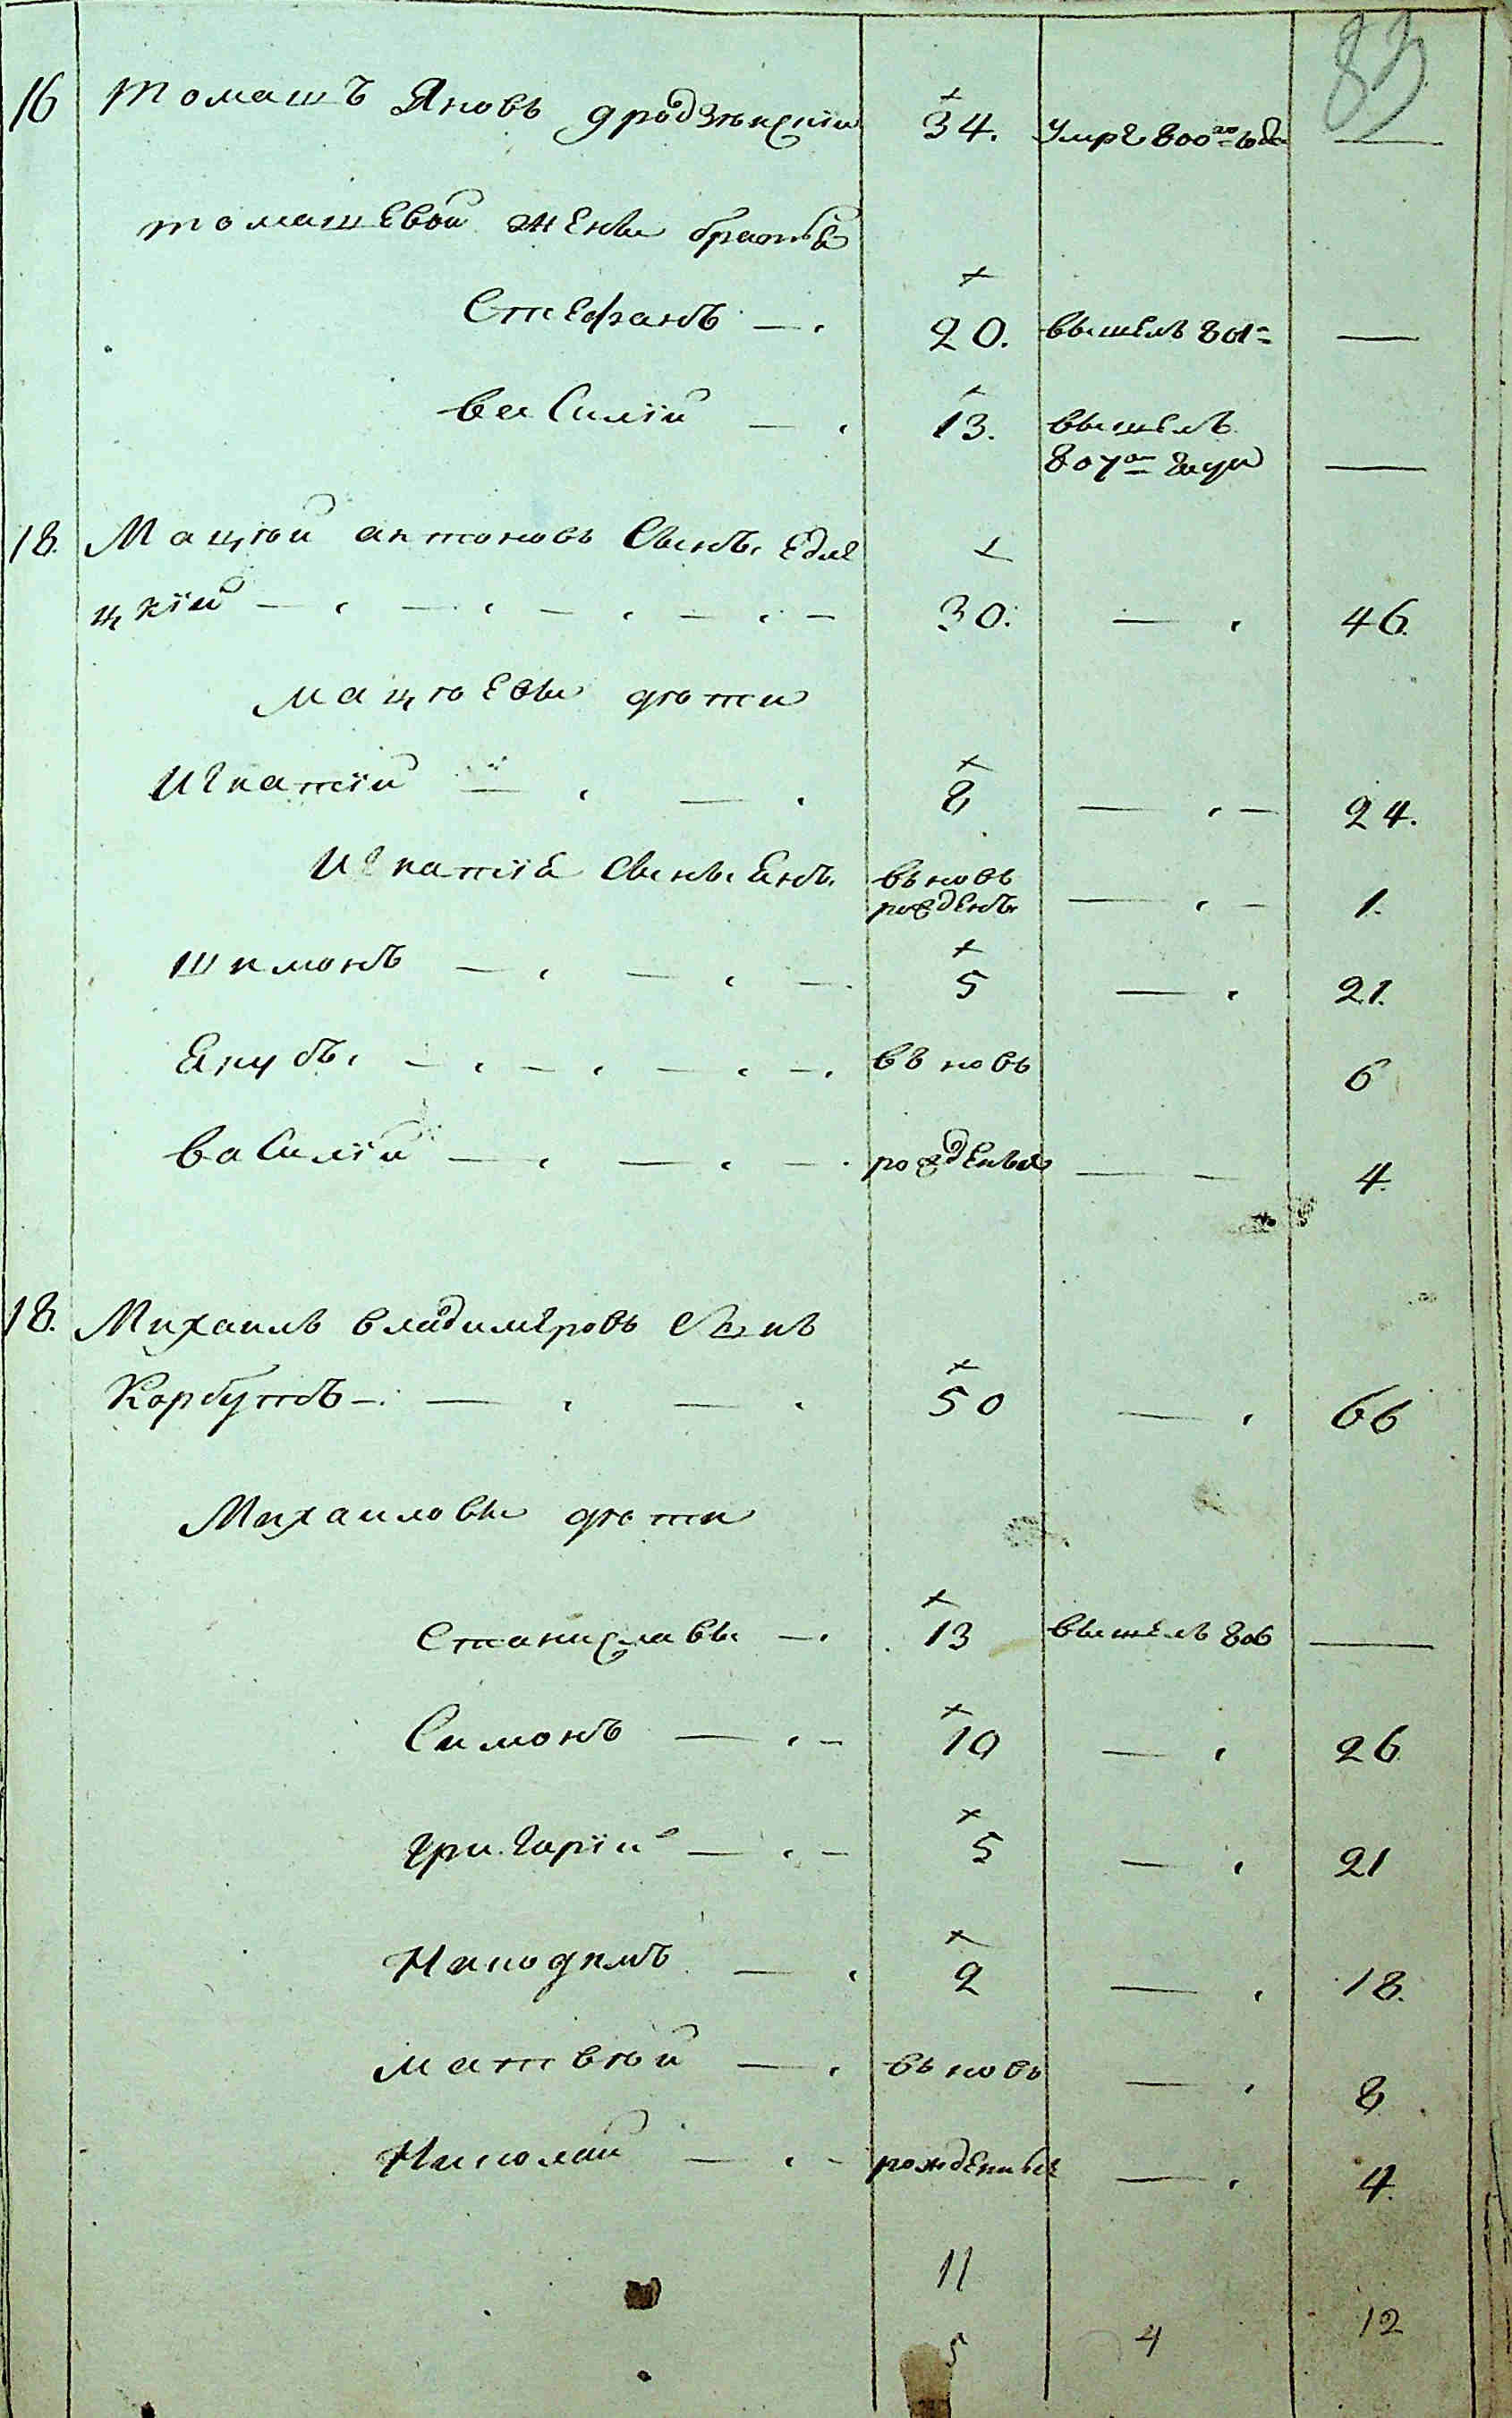 83
16 Томашъ Яновъ дродзѣнскій 34. умре 800го года —
томашевой жены братья
Стефанъ — 20. вышелъ 801 —
василій — 13. вышелъ
807го году —
18. Мацѣй антоновъ Сынъ едле
цкій — 30. — 46.
мацѣевы дѣти
Игнатій — 8 — 24.
Игнатія Сынъ Янъ вьновь — 1.
рожденъ
шимонъ — 5 — 21.
Якубъ — вь новь 6
василій — рожденые — 4.
18. Михаилъ владимеровъ Сынъ
Корбутъ — 50 — 66
Михаиловы дѣти
Станиславъ — 13 вышелъ 806 —
Симонъ — 10 — 26
григорій — 5 — 21
Никодимъ — 2 — 18.
матвѣй — вь новь — 8
Николай — рожденные — 4.
11
5 4 12